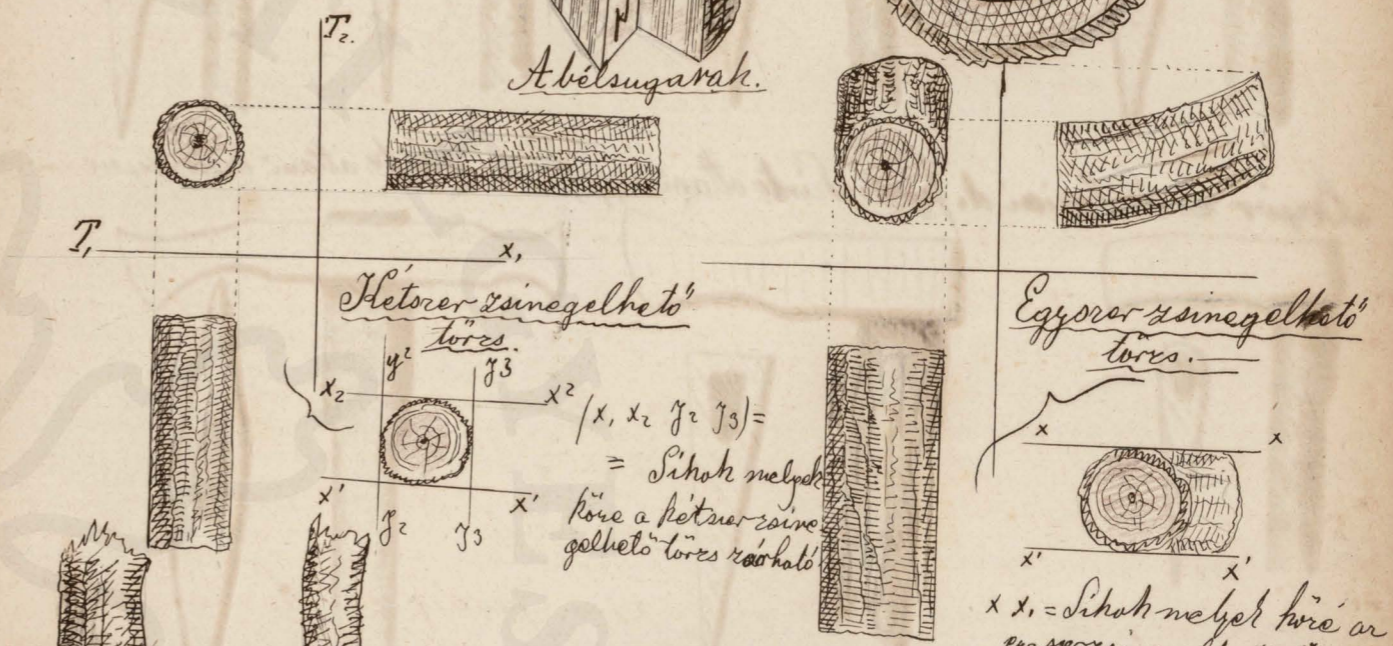 T₂.
A bélsugarak.
T₁
x₁
Kétszer zsinegelhető
törzs.
y² y3
x₂ x²
x' x'
y₂ y3
(x, x₂ y₂ y3)=
= Síkok melyek
köré a kétszer zsine
gelhető törzs zárható
Egyszer zsinegelhető
törzs.
x x
x' x'
x x, = Síkok melyek köré az